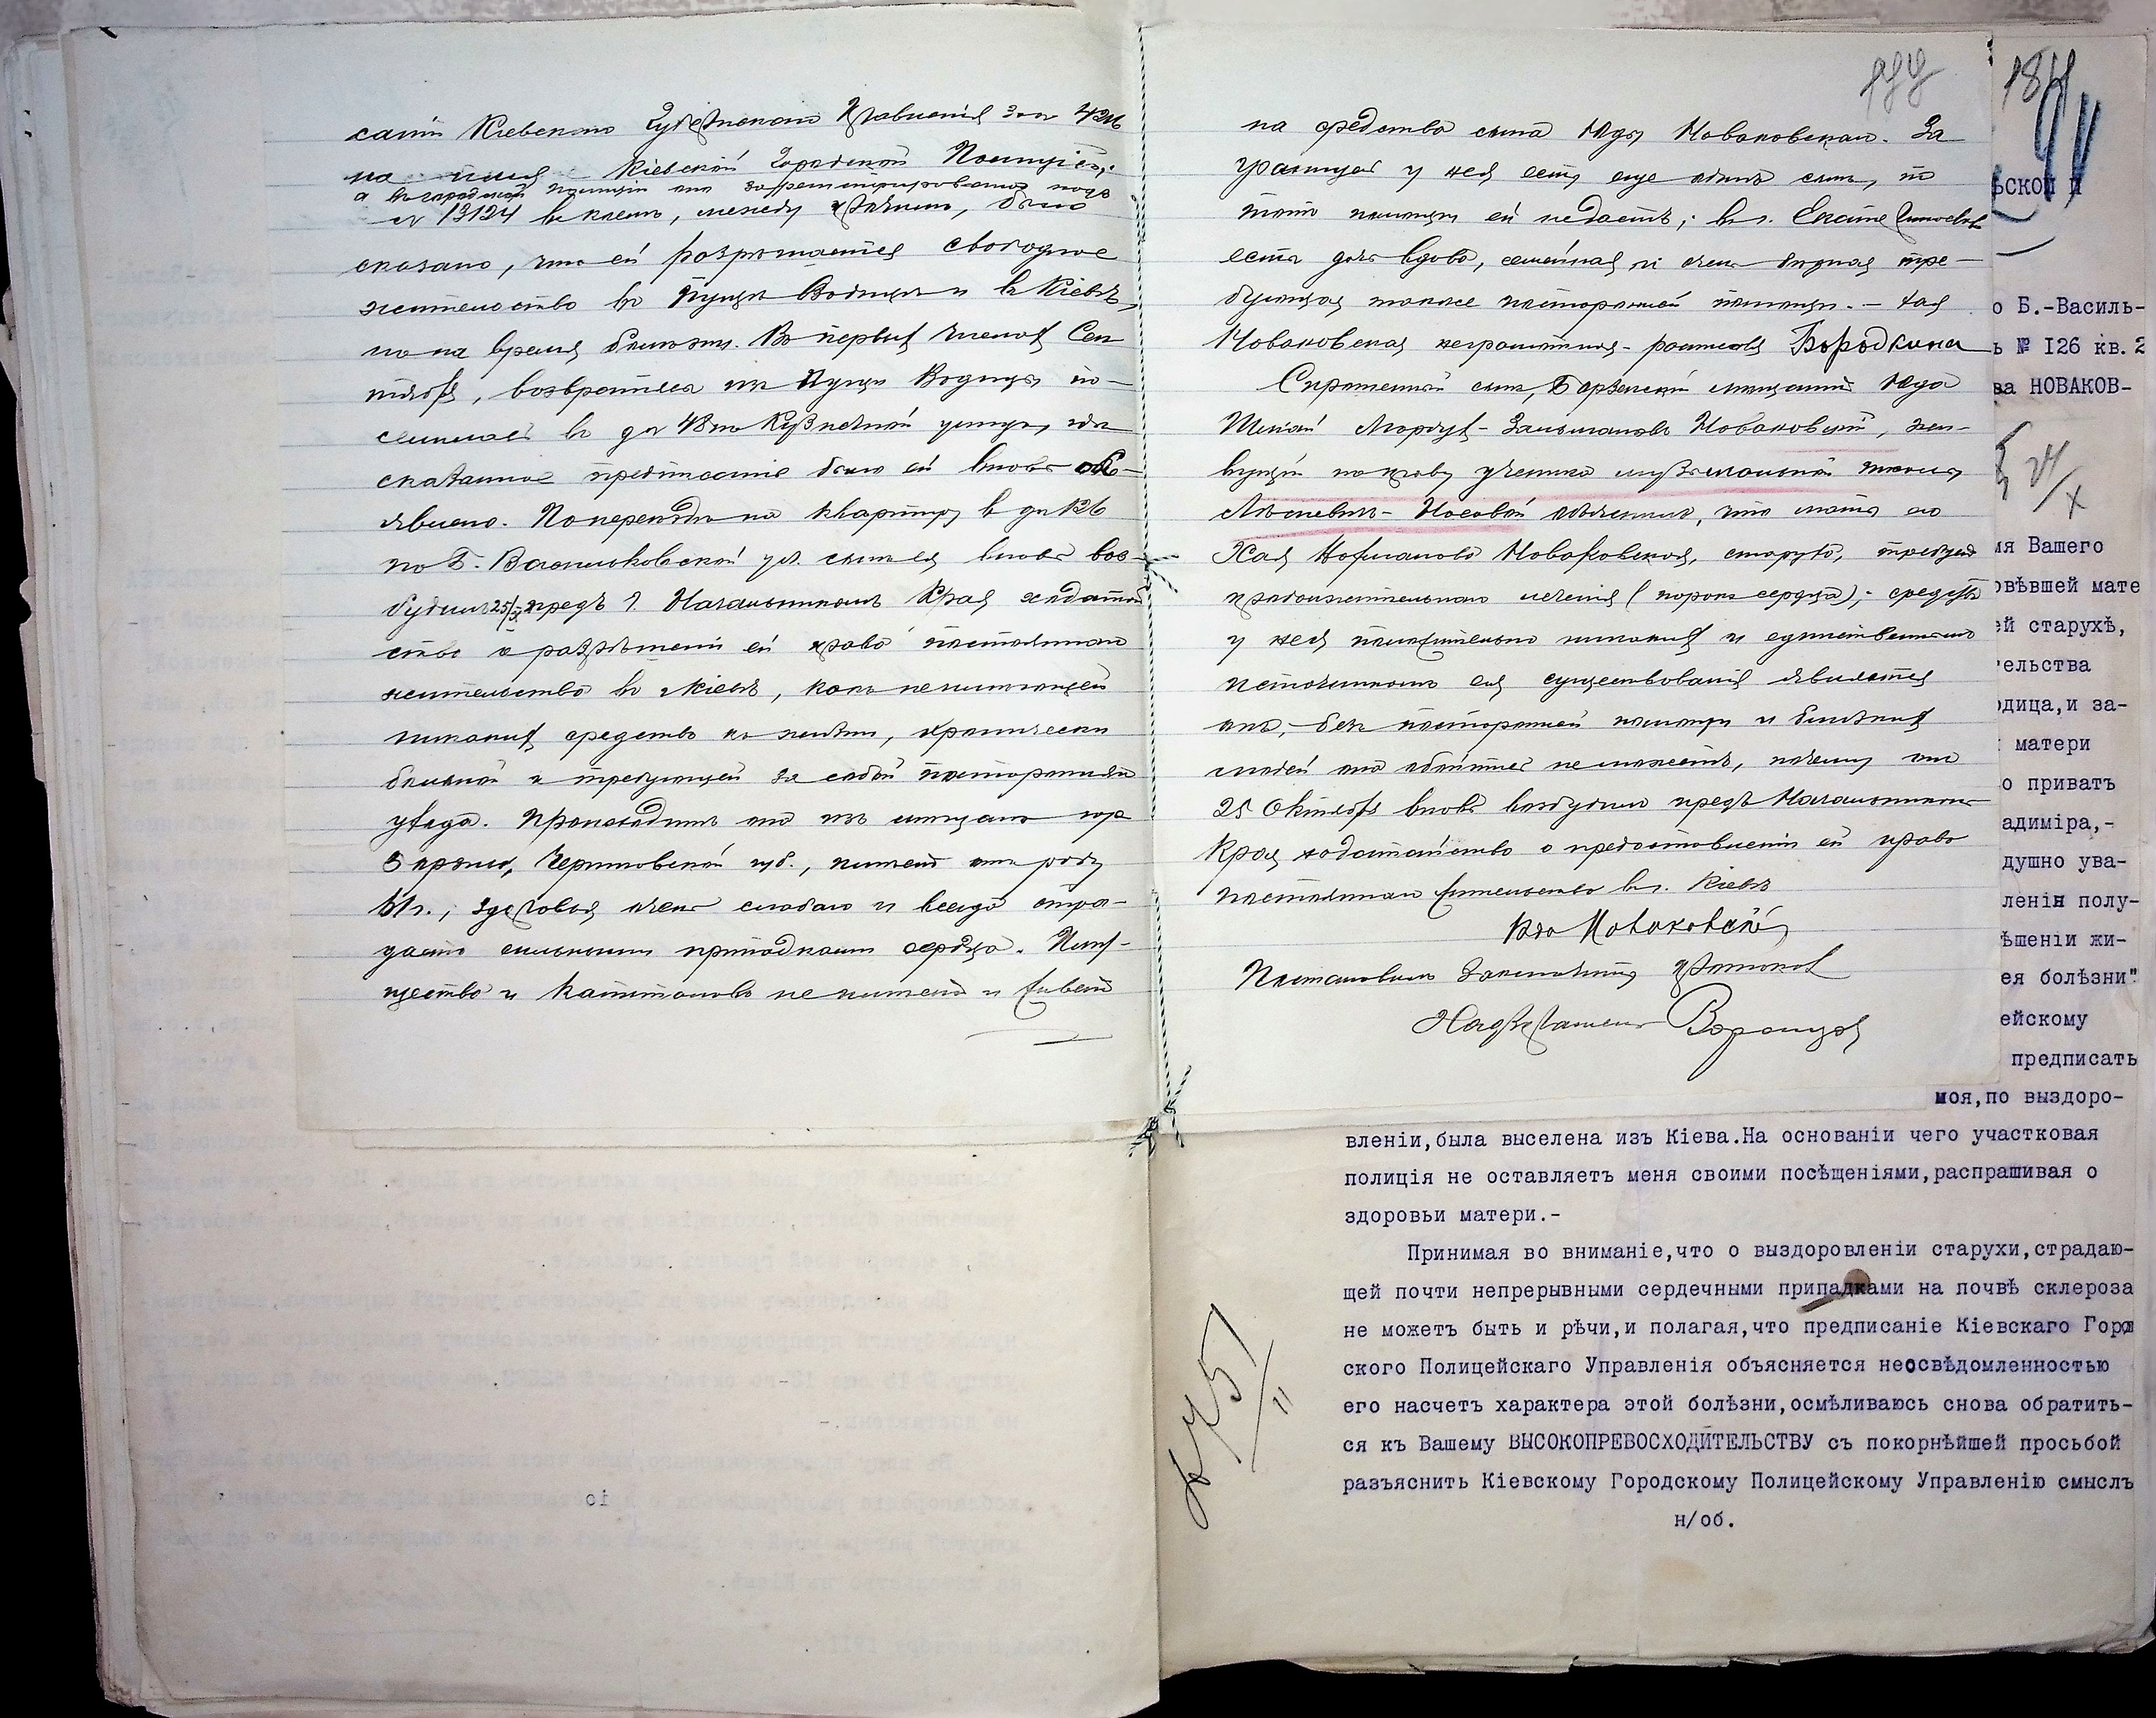 саніи Кіевскаго Губернскаго Правленія за № 4216
на имя Кіевской Городской Полиціи,
а въ городской полиціи оно зарегистрировано подъ
№ 13124 въ коемъ, между прочимъ, было
сказано, что ей разрѣшается свободное
жительство въ Пущѣ Водицѣ и въ Кіевѣ,
но на время болѣзни. Въ первыхъ числахъ Сен
тября, возвратясь изъ Пущи Водицы по-
селилась въ д № 48 по Кузнечной улицѣ, гдѣ
сказанное предписаніе было ей вновь объ-
явлено. По переходѣ на квартиру въ д № 126
по Б. Васильковской ул. сынъ ея вновь воз-
будилъ 25/X предъ г. Начальникомъ Края ходатай
ство о разрѣшеніи ей права постояннаго
жительства въ г Кіевѣ, какъ неимѣющей
никакихъ средствъ къ жизни, хронически
больной и требующей за собой посторонняго
ухода. Происходитъ она изъ мѣщанъ гор
Борзны, Черниговской губ., имѣетъ отъ роду
61 г.; здоровья очень слабаго и всегда стра-
даетъ сильными припадками сердца. Иму-
щества и капиталовъ не имѣетъ и живетъ
на средства сына Юды Новаковскаго. За
границей у нея есть еще одинъ сынъ, но
тотъ помощи ей недаетъ; въ г. Екатеринославѣ
есть дочь вдова, семейная и очень бѣдная тре-
бующая также посторонней помощи. – Хая
Новаковская неграмотная - росписался Бородкина
Спрошенный сынъ, Борзенскій мѣщанинъ Юда
Шлиой Мордух-Зальмановъ Новаковскій, жи-
вущій по праву ученика музыкальной школы
Лѣсневичъ-Носовой объяснилъ, что мать его
Хая Нофманова Новаковская, старуха, требуетъ
продолжительнаго леченія (порокъ сердца); средствъ
у нея положительно никакихъ и единственнымъ
источникомъ ея существованія является
онъ, - безъ посторонней помощи и близкихъ
людей она обойтись не можетъ, почему онъ
25 Октября вновь возбудилъ предъ Начальникомъ
Края ходатайство о предоставленіи ей права
постояннаго жительства въ г. Кіевѣ
Юда Новаковскій
Постановилъ Заключить протоколъ
Надзиратель Воронцов
ьской п
о Б.-Василь-
ь № I26 кв.2
ва НОВАКОВ-
мя Вашего
овѣвшей мате
ей старухѣ,
ельства
одица,и за-
матери
о приватъ
адиміра,-
душно ува-
леніи полу-
ѣшеніи жи-
ея болѣзни"
ейскому
предписать
моя,по выздоро-
вленіи,была выселена изъ Кіева.На основаніи чего участковая
полиція не оставляетъ меня своими посѣщеніями,распрашивая о
здоровьи матери.-
Принимая во вниманіе,что о выздоровленіи старухи,страдаю-
щей почти непрерывными сердечными припадками на почвѣ склероза
не можетъ быть и рѣчи,и полагая,что предписаніе Кіевскаго Город
ского Полицейскаго Управленія объясняется неосвѣдомленностью
его насчетъ характера этой болѣзни,осмѣливаюсь снова обратить-
ся къ Вашему ВЫСОКОПРЕВОСХОДИТЕЛЬСТВУ съ покорнѣйшей просьбой
разъяснить Кіевскому Городскому Полицейскому Управленію смыслъ
н/об.